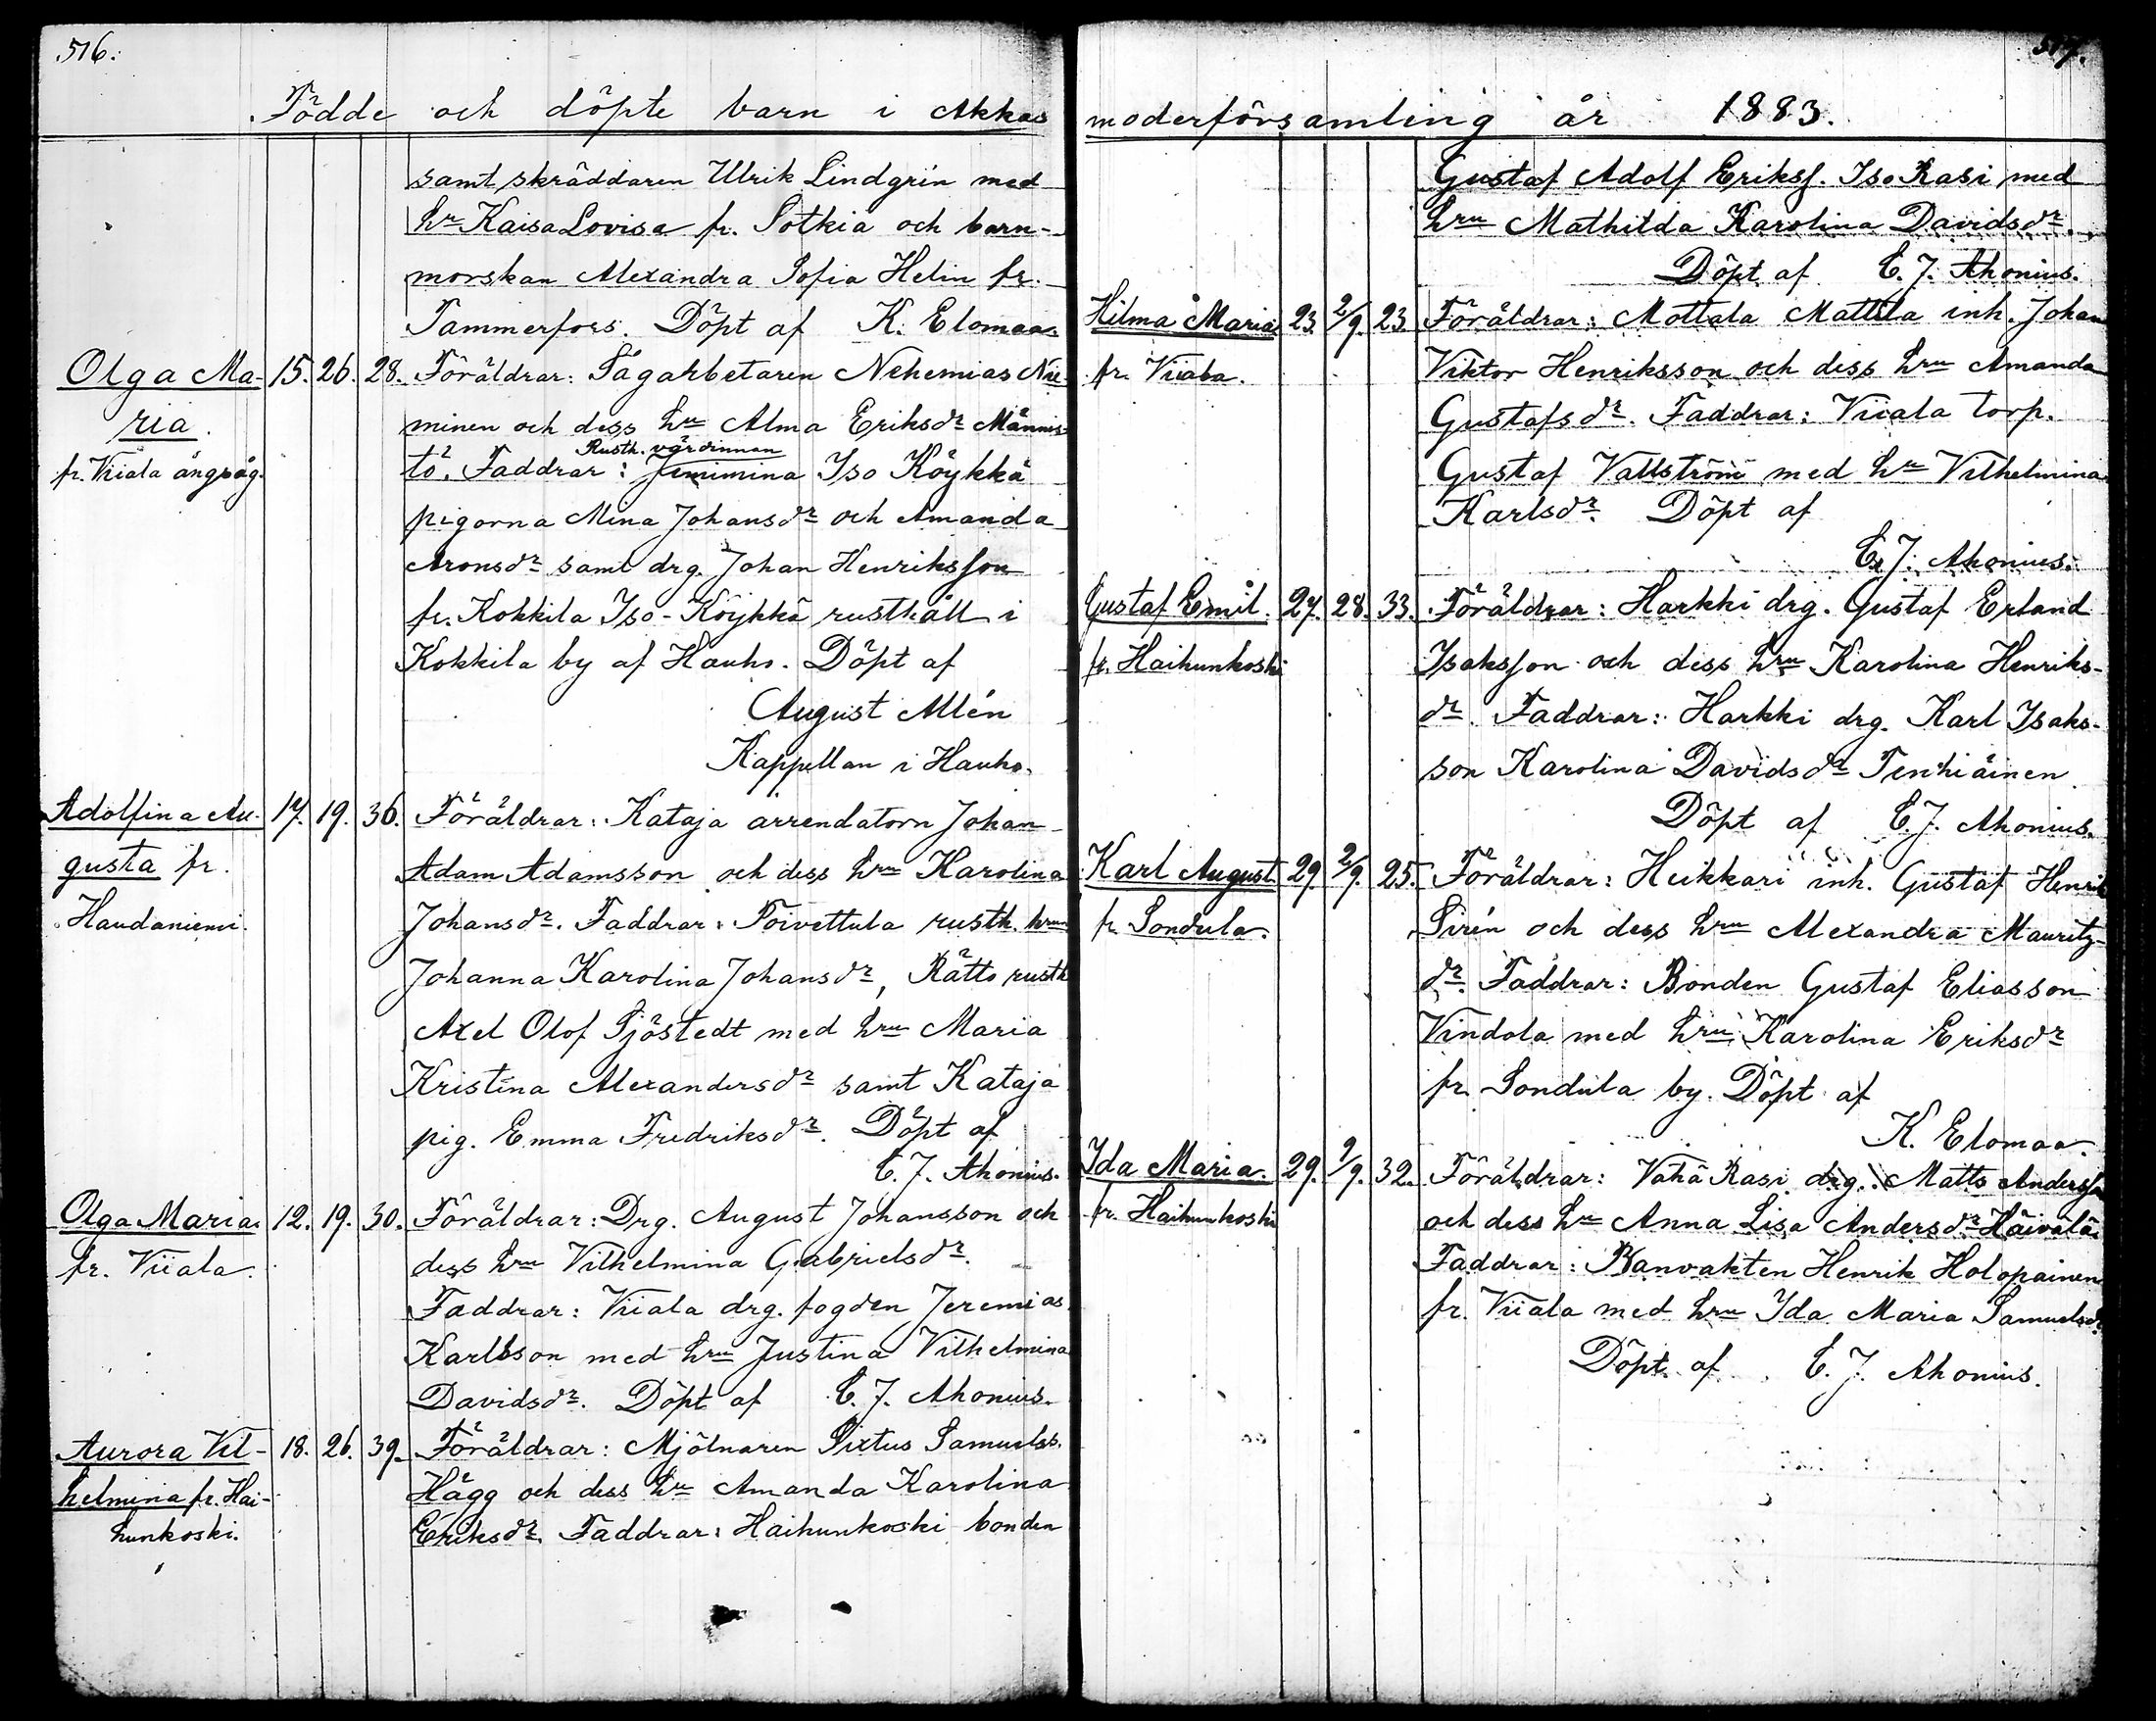 516.
Födde och döpte barn i Akkas
samt skräddaren Ulrik Lindgrén med
hu Kaisa Lovisa fr. Sotkia och barn-
morskan Alexandra Sofia Helin fr.
Tammerfors. Döpt af K. Elomaa.
Olga Ma- 15. 26. 28. Föräldrar: Sågarbetaren Nehemias Nie-
ria. minen och dess hu Alma Eriksdr Männis-
Rusth. värdinnan
fr. Viiala ångsåg. tö. Faddrar: Jemimina Iso Köykkä
pigorna Mina Johansdr och Amanda
Aronsdr samt drg. Johan Henriksson
fr. Kokkila Iso-Köykkä rusthåll i
Kokkila by af Hauho. Döpt af
August Allén
Kappellan i Hauho.
Adolfina Au- 17. 19. 36. Föräldrar: Kataja arrendatorn Johan
gusta fr. Adam Adamsson och dess hru Karolina
Haudaniemi. Johansdr. Faddrar: Toivettula rusth. hru
Johanna Karolina Johansdr, Rättö rusth
Axel Olof Sjöstedt med hru Maria
Kristina Alexandersdr samt Kataja
pig. Emma Fredriksdr. Döpt af
C. J. Ahonius.
Olga Maria. 12. 19. 30. Föräldrar: Drg. August Johansson och
fr. Viiala. dess hru Vilhelmina Gabrielsdr.
Faddrar: Viiala drg. fogden Jeremias
Karlsson med hru Justina Vilhelmina
Davidsdr. Döpt af C. J. Ahonius.
Aurora Vil- 18. 26. 39. Föräldrar: Mjölnaren Sixtus Samuelss.
helmina fr. Hai- Hägg och dess hu Amanda Karolina
hunkoski. Eriksdr. Faddrar: Haihunkoski bonden
517.
moderförsamling år 1883.
Gustaf Adolf Erikss. Iso Rasi med
hru Mathilda Karolina Davidsdr.
Döpt af C. J. Ahonius.
Hilma Maria 23. 2/9. 23. Föräldrar: Mottala Mattila inh. Johan
fr. Viiala. Viktor Henriksson och dess hru Amanda
Gustafsdr. Faddrar: Viiala torp.
Gustaf Vallström med hu Vilhelmina
Karlsdr. Döpt af
C. J. Ahonius.
Gustaf Emil. 27. 28. 33. Föräldrar: Harkki drg. Gustaf Erland
fr. Haihunkoski Isaksson och dess hru Karolina Henriks-
dr. Faddrar: Harkki drg. Karl Isaks-
son Karolina Davidsdr Tenhiäinen
Döpt af C. J. Ahonius.
Karl August 29. 2/9. 25. Föräldrar: Heikkari inh. Gustaf Henrik
fr. Sondula. Sirén och dess hru Alexandra Mauritz-
dr. Faddrar: Bonden Gustaf Eliasson
Vindola med hru Karolina Eriksdr
fr. Sondula by. Döpt af
K. Elomaa.
Ida Maria. 29. 9/9. 32. Föräldrar: Vähä Rasi drg. Matts Andersson
fr. Haihunkoski och dess hu Anna Lisa Andersdr Häivälä.
Faddrar: Banvakten Henrik Holopainen
fr. Viiala med hru Ida Maria Samuelsdr
Döpt af C. J. Ahonius.